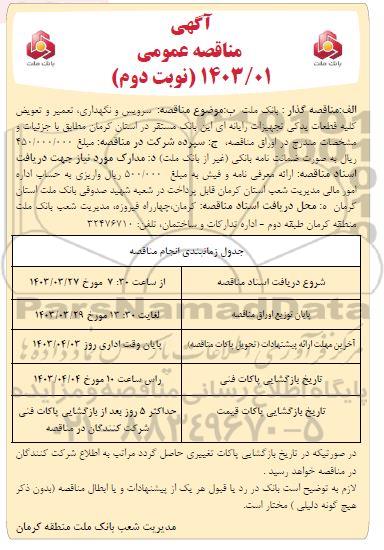 آگهی
مناقصه عمومی
۱۴۰۳/۰۱ (نوبت دوم)
بانک ملت
بانک ملت
الف:مناقصه گذار : بانک ملت ب:موضوع مناقصه: سرویس و نگهداری، تعمیر و تعویض
کلیه قطعات یدکی تجهیزات رایانه ای این بانک مستقر در استان کرمان مطابق با جزئیات و
مشخصات مندرج در اوراق مناقصه، ج: سپرده شرکت در مناقصه: مبلغ ۴۵۰/۰۰۰/۰۰۰
ریال به صورت ضمانت نامه بانکی (غیر از بانک ملت) د: مدارک مورد نیاز جهت دریافت
اسناد مناقصه: ارائه معرفی نامه و فیش به مبلغ ۵۰۰/۰۰۰ ریال واریزی به حساب اداره
امور مالی مدیریت شعب استان کرمان قابل پرداخت در شعبه شهید صدوقی بانک ملت استان
کرمان ه: محل دریافت اسناد مناقصه: کرمان،چهارراه فیروزه، مدیریت شعب بانک ملت
منطقه کرمان طبقه دوم - اداره تدارکات و ساختمان، تلفن: ۳۲۴۷۶۷۱۰
جدول زمانبندی انجام مناقصه
شروع دریافت اسناد مناقصه از ساعت ۷:۳۰ مورخ ۱۴۰۳/۰۳/۲۷
پایان توزیع اوراق مناقصه لغایت ۱۳:۳۰ مورخ ۱۴۰۳/۰۳/۲۹
آخرین مهلت ارائه پیشنهادات (تحویل پاکات مناقصه) پایان وقت اداری روز ۱۴۰۳/۰۴/۰۳
تاریخ بازگشایی پاکات فنی راس ساعت ۱۰ مورخ ۱۴۰۳/۰۴/۰۴
تاریخ بازگشایی پاکات قیمت حداکثر ۵ روز بعد از بازگشایی پاکات فنی
شرکت کنندگان در مناقصه
در صورتیکه در تاریخ بازگشایی پاکات تغییری حاصل گردد مراتب به اطلاع شرکت کنندگان
در مناقصه خواهد رسید .
لازم به توضیح است بانک در رد یا قبول هر یک از پیشنهادات و یا ابطال مناقصه (بدون ذکر
هیچ گونه دلیلی ) مختار است.
مدیریت شعب بانک ملت منطقه کرمان
ParsNamadData
پایگاه اطلاع رسانی مناقصه و مزایده
۰۲۱-۸۸۳۴۹۶۷۰-۵